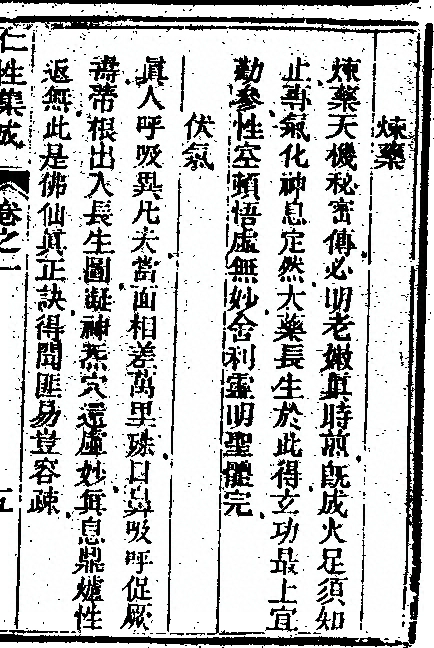 煉藥
煉藥天機秘密傳必明老嫩真時煎既成火足須知
止再氣化神息定然大藥長生於此得立功最上宜
勤參性空頓悟虛無妙舍利靈明聖體完
伏氣
真人呼吸異凡夫當面相差萬里殊口鼻吸呼促厥
壽蒂根出入長生圖凝神炁穴還虛妙真息鼎爐性
返無此是佛仙真正訣得聞匪易豈容疎
仁性集成 卷之一 五